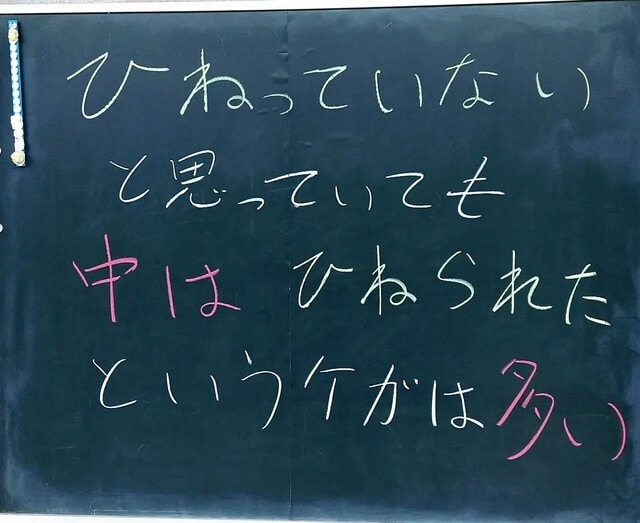 ひねっていない
と思っていても
中は ひねられた
というケガは多い